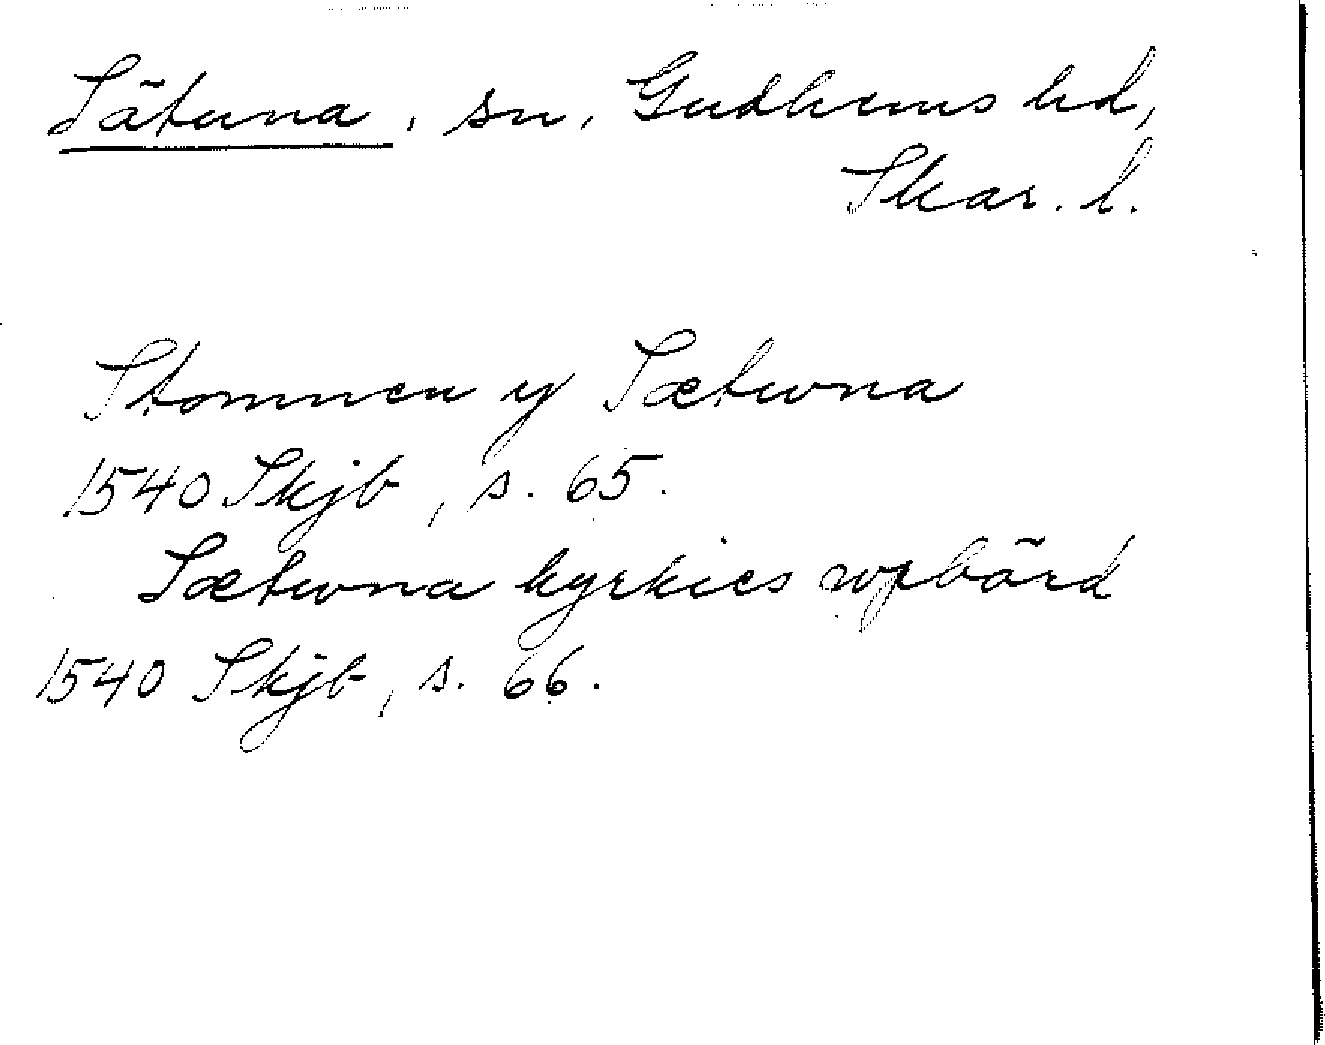 Sätuna, sn, Gudhems hd,
Skar. l.
Stommen y Sætwna
1540 Skjb, s. 65.
Sætwna kyrkies wpbörd
1540 Skjb, s. 66.